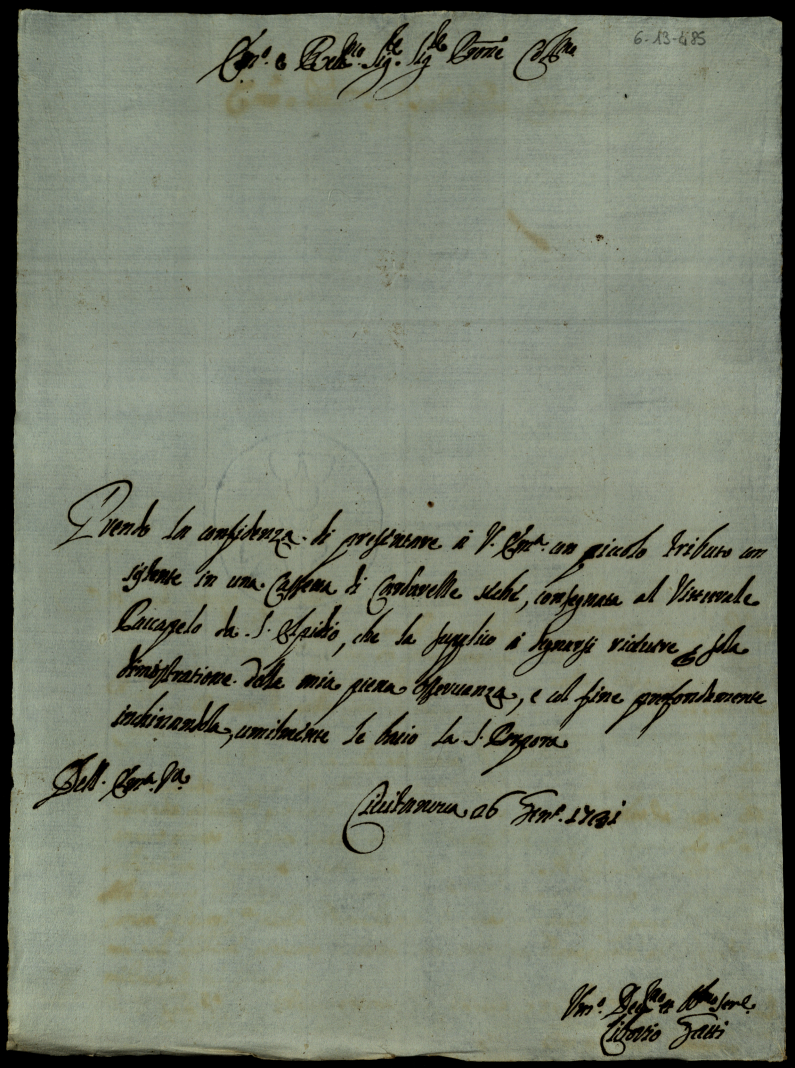 6-13-485
Em.º e Rev.mo Sig.re Sig.re Prône Col.mo
Prendo la confidenza di presentare à V. Em.a un piccolo tributo con
sistente in una Cassetta di consegnata al Vetturale
da S. Elpidio, che la supplico à degnarsi ricevere p sola
dimostratione della mia piena osservanza, e col fine profondamente
inchinandola, umilmente le bacio la S. Porpora
Dell. Em.a V.a
Civitanova 26 Gen.º 1731
Vm.º Dev.mo et Obl.mo Serv.e
Liborio